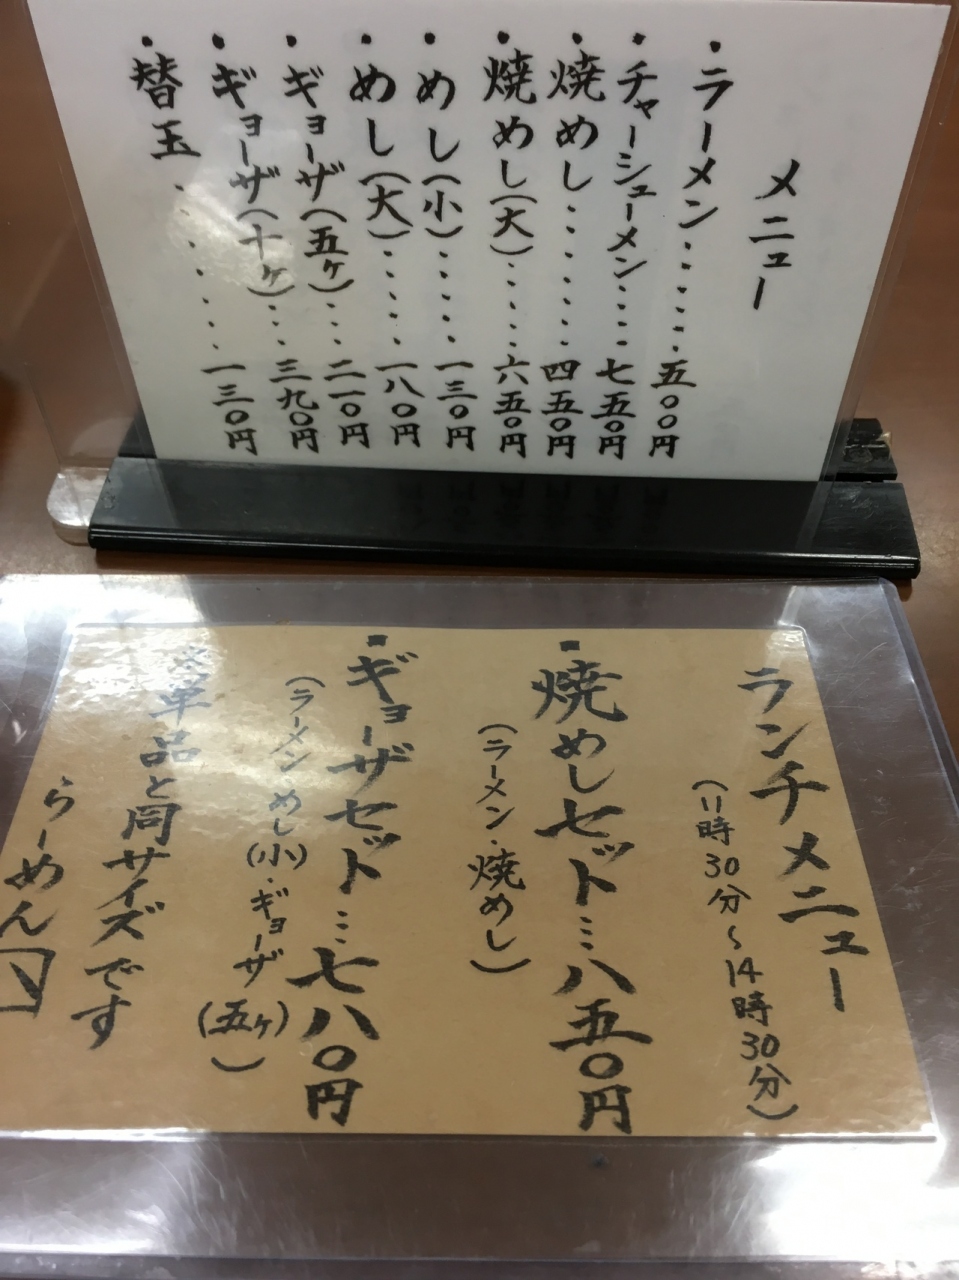 メニュー
・ラーメン・・・・・五〇〇円
・チャーシューメン・・・・七五〇円
・焼めし・・・・・・四五〇円
・焼めし(大)・・・・六五〇円
・めし(小)・・・・・一三〇円
・めし(大)・・・・・一八〇円
・ギョーザ(五ヶ)・・・二一〇円
・ギョーザ(十ヶ)・・・三九〇円
・替玉・・・・・・一三〇円
ランチメニュー
(11時30分〜14時30分)
・焼めしセット…八五〇円
(ラーメン・焼めし)
・ギョーザセット…七八〇円
(ラーメン めし(小)・ギョーザ(五ヶ))
※単品と同サイズです
らーめん